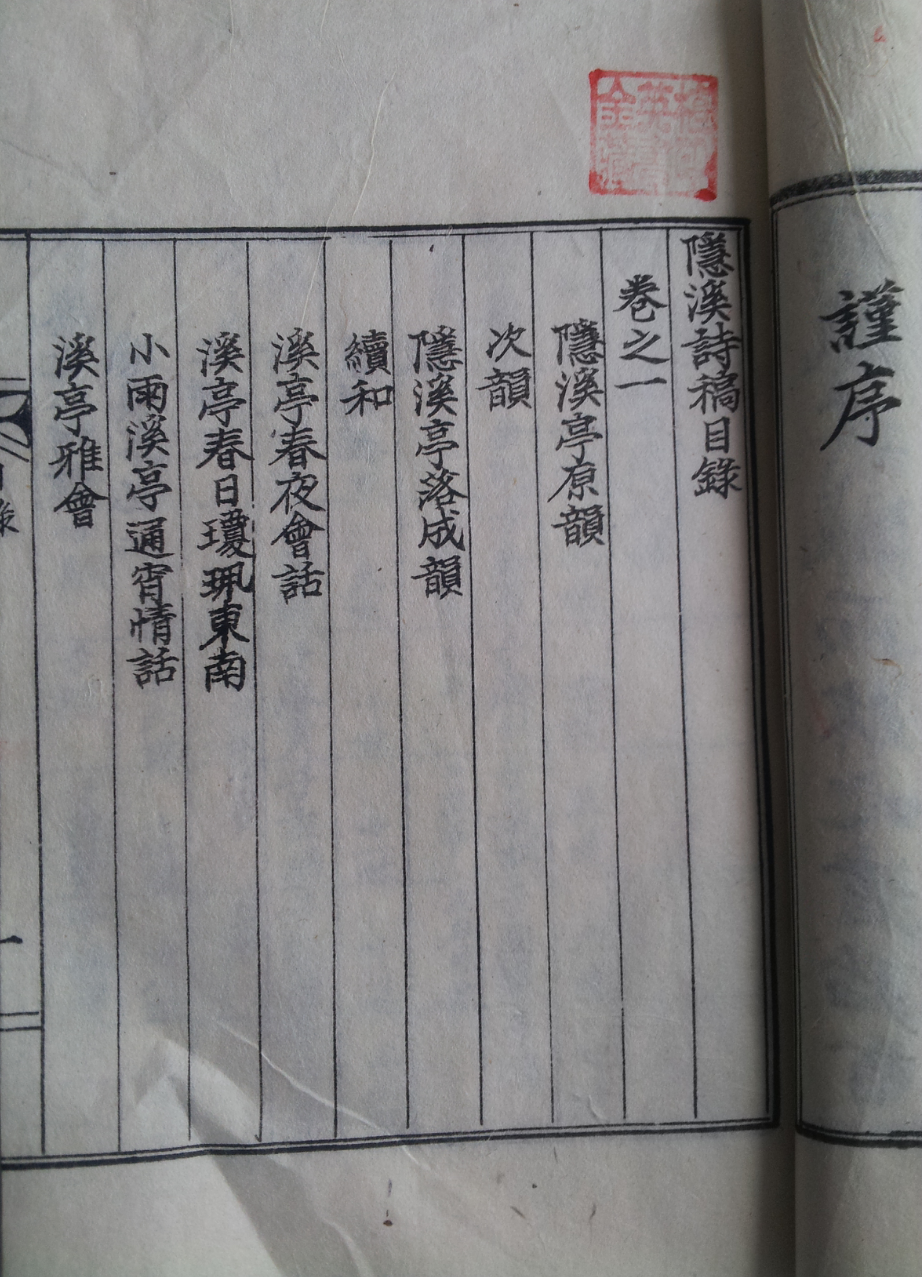 謹序
隱溪詩稿目錄
卷之一
隱溪亭原韻
次韻
隱溪亭落成韻
續和
溪亭春夜會話
溪亭春日瓊珮東南
小雨溪亭通宵情話
溪亭雅會
目錄
一